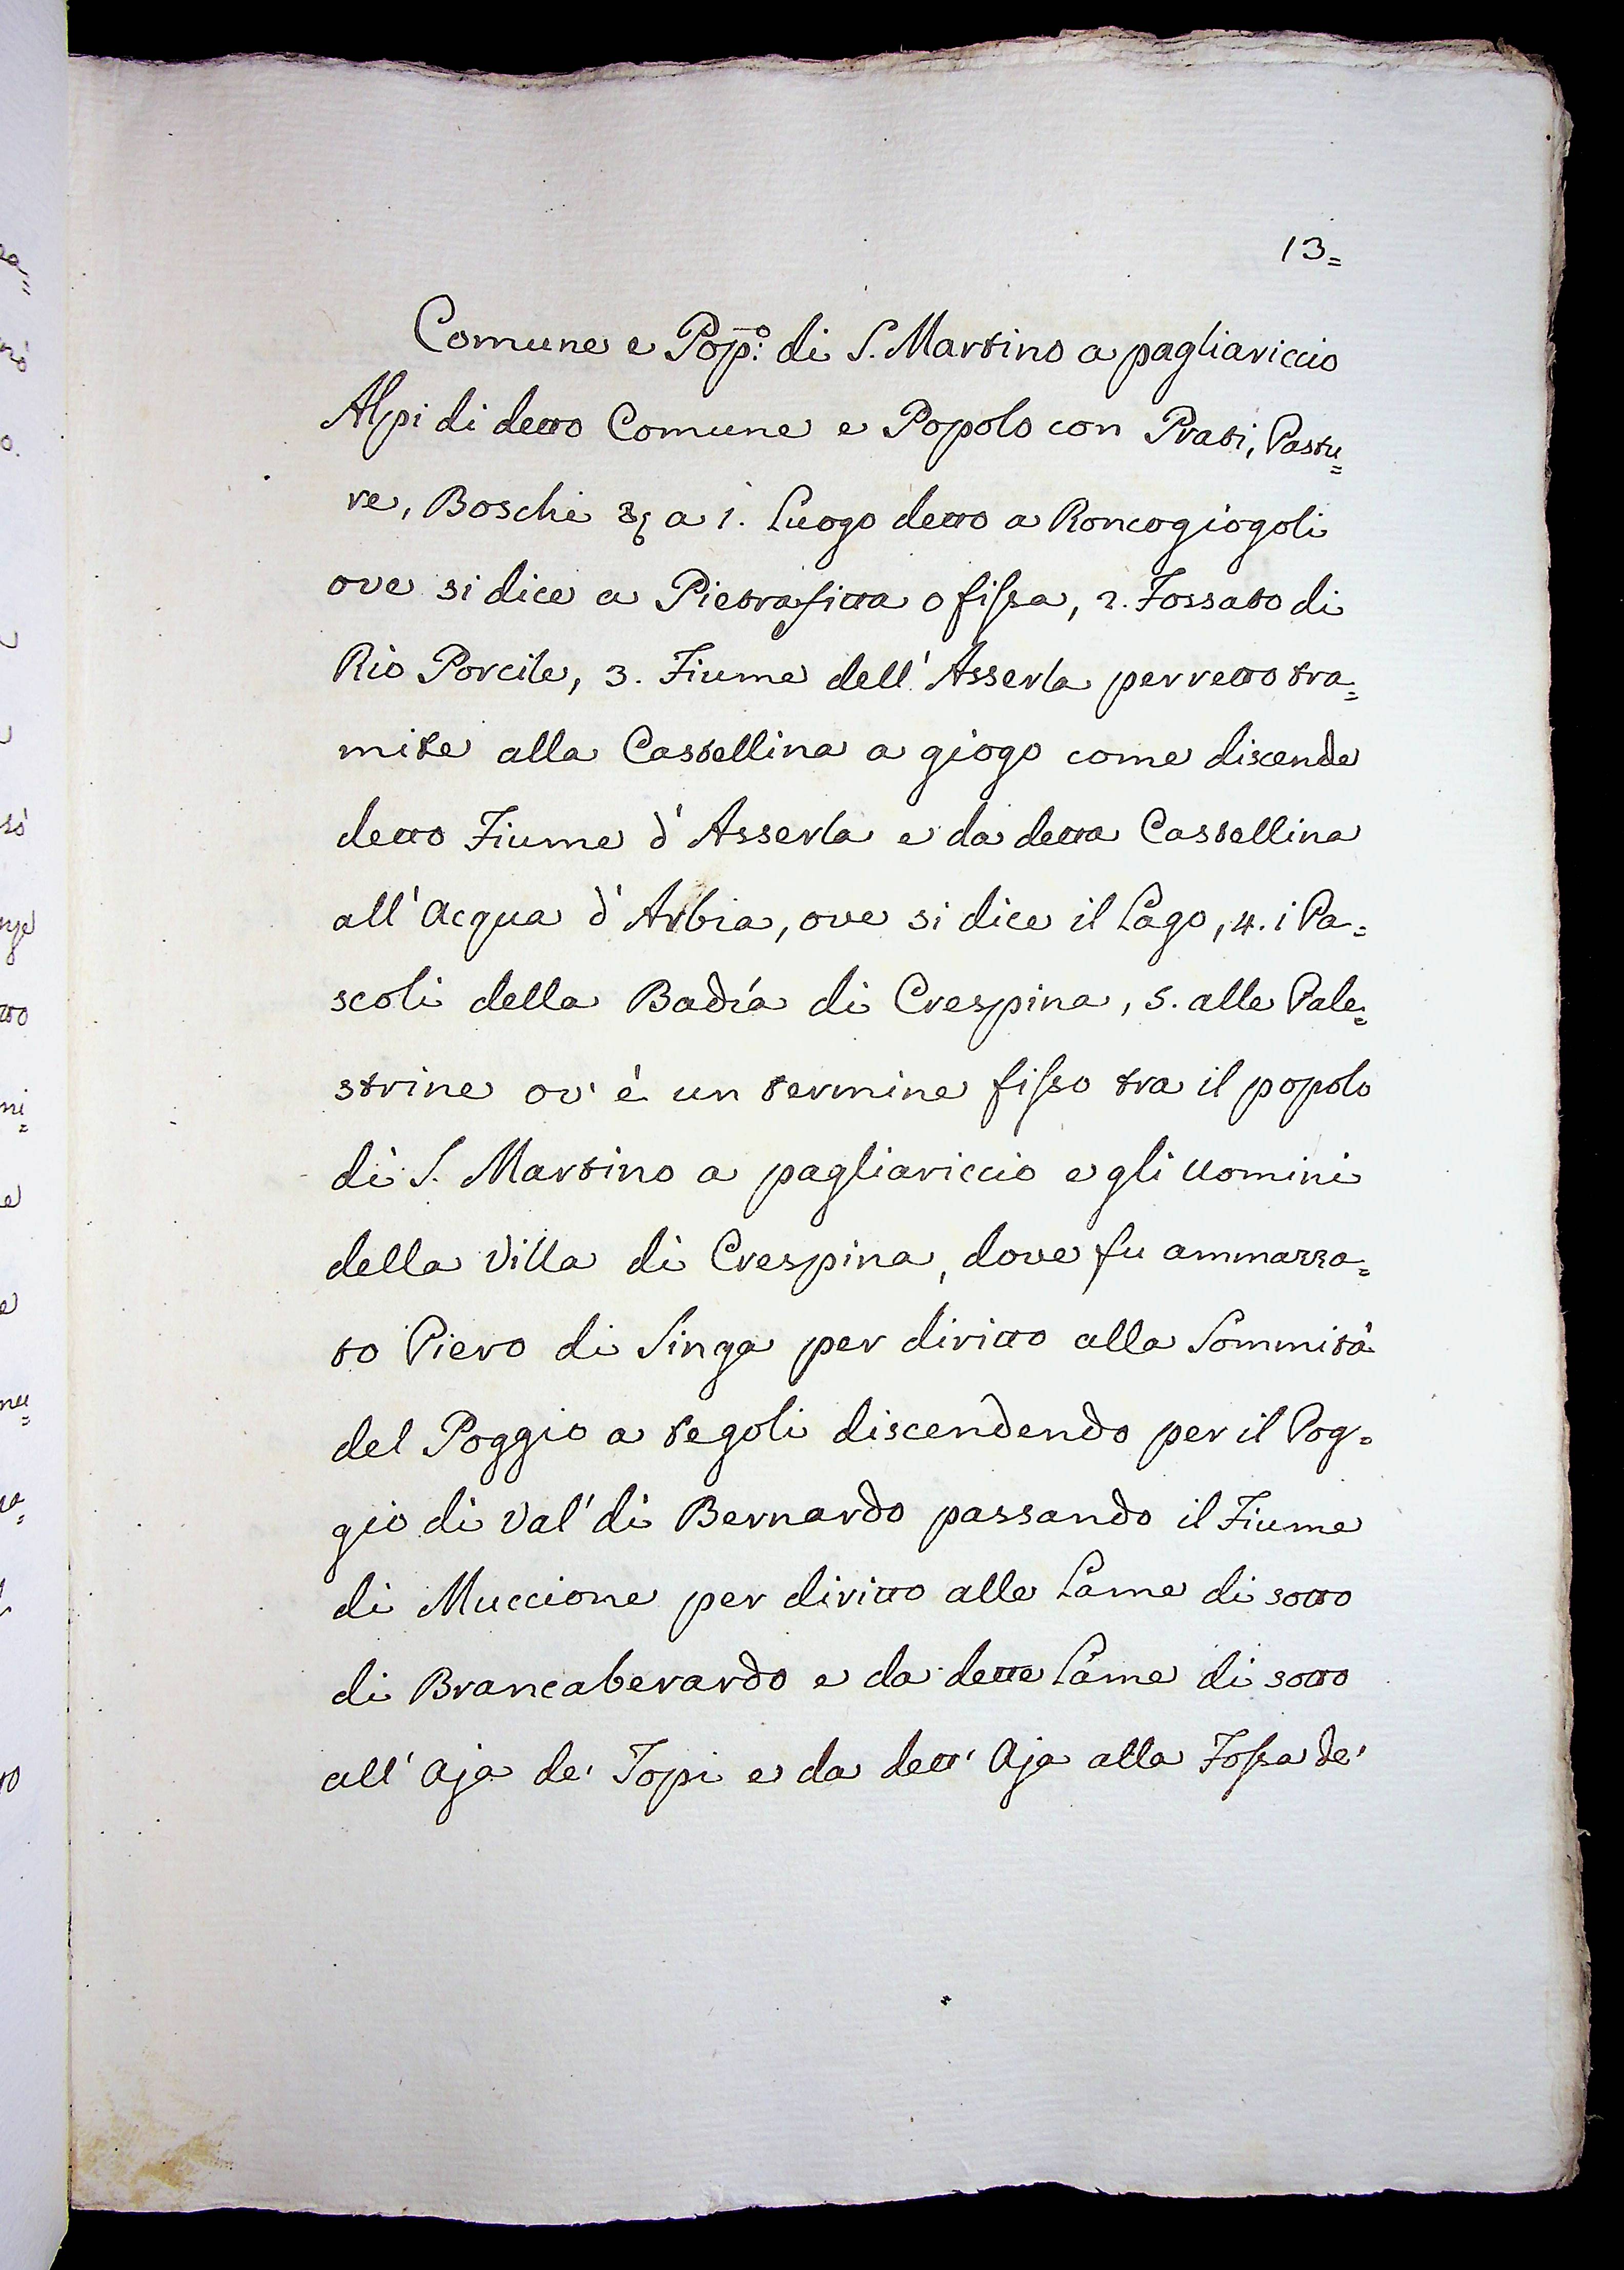 13=
Comune e Pop̅:º di S. Martino a pagliariccio
Alpi di detto Comune e Popolo con Prati, Pastu=
re, Boschi &c a 1. Luogo detto a Roncogiogoli
ove si dice a Pietrafitta o fissa, 2. Fossato di
Rio Porcile, 3. Fiume dell' Asserla per retto tra=
mite alla Castellina a giogo come discende
detto Fiume d' Asserla e da detta Castellina
all' Acqua d' Arbia, ove si dice il Lago, 4. i Pa=
scoli della Badía di Crespina, 5. alle Pale=
strine ov' è un termine fisso tra il popolo
di S. Martino a pagliariccio e gli uomini
della Villa di Crespina, dove fu ammazza=
to Piero di Singa per diritto alla Sommità
del Poggio a tegoli discendendo per il Pog=
gio di Val' di Bernardo passando il Fiume
di Muccione per diritto alle Lame di sotto
di Brancaberardo e da dette Lame di sotto
all' Aja de' Topi e da dett' Aja alla Fossa de'